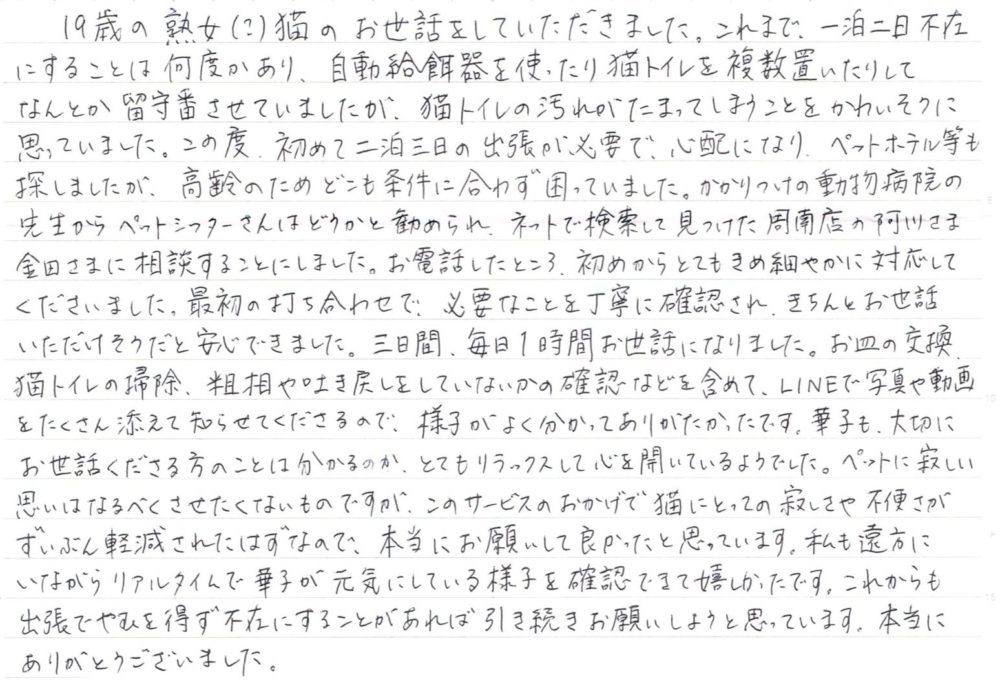 19歳の熟女(?)猫のお世話をしていただきました。これまで、一泊二日不在
にすることは何度かあり、自動給餌器を使ったり猫トイレを複数置いたりして
なんとか留守番させていましたが、猫トイレの汚れがたまってしまうことをかわいそうに
思っていました。この度、初めて二泊三日の出張が必要で、心配になり、ペットホテル等も
探しましたが、高齢のためどこも条件に合わず困っていました。かかりつけの動物病院の
先生からペットシッターさんはどうかと勧められ、ネットで検索して見つけた周南店の阿川さま
金田さまに相談することにしました。お電話したところ、初めからとてもきめ細やかに対応して
くださいました。最初の打ち合わせで、必要なことを丁寧に確認され、きちんとお世話
いただけそうだと安心できました。三日間、毎日1時間お世話になりました。お皿の交換、
猫トイレの掃除、粗相や吐き戻しをしていないかの確認などを含めて、LINEで写真や動画
をたくさん添えて知らせてくださるので、様子がよく分かってありがたかったです。華子も、大切に
お世話くださる方のことは分かるのか、とてもリラックスして心を開いているようでした。ペットに寂しい
思いはなるべくさせたくないものですが、このサービスのおかげで猫にとっての寂しさや不便さが
ずいぶん軽減されたはずなので、本当にお願いして良かったと思っています。私も遠方に
いながらリアルタイムで華子が元気にしている様子を確認できて嬉しかったです。これからも
出張でやむを得ず不在にすることがあれば引き続きお願いしようと思っています。本当に
ありがとうございました。